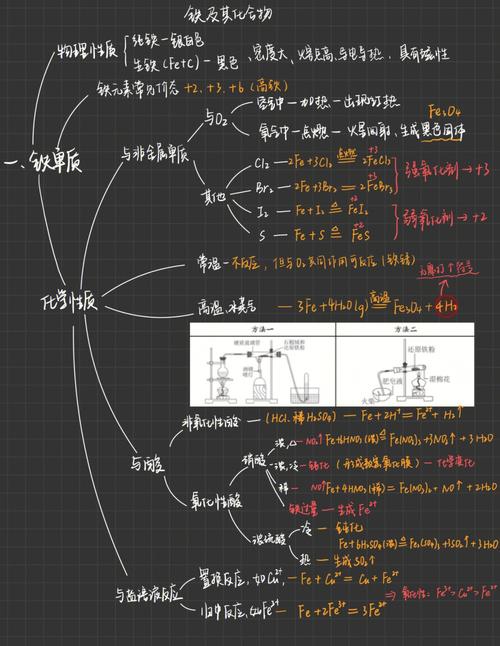 铁及其化合物
一、铁单质
物理性质
纯铁—银白色
生铁(Fe+C)—黑色
密度大、熔点高、导电导热、具有磁性
化学性质
铁元素常见价态 +2、+3、+6(高铁)
与非金属单质
与O₂
空气中—加热—出现红热
氧气中—点燃—火星四射、生成黑色固体
Fe₃O₄
其他
Cl₂ — 2Fe+3Cl₂ 点燃 2FeCl₃ +3
Br₂ — 2Fe+3Br₂ = 2FeBr₃ +3
强氧化剂→+3
I₂ — Fe+I₂ ≜ FeI₂
S — Fe+S ≜ FeS +2
弱氧化剂→+2
常温—不反应,但与O₂共同作用可反应(铁锈)
高温、水蒸气 — 3Fe+4H₂O(g) 高温 Fe₃O₄+4H₂
方法一
玻璃玻璃管
石棉绒和
还原铁粉
方法二
还原铁粉
肥皂液
湿棉花
火柴
与酸
非氧化性酸 — (HCl、稀H₂SO₄) — Fe+2H⁺=Fe²⁺+H₂↑
氧化性酸
硝酸
浓、△ — NO₂↑ Fe+6HNO₃(浓)≜Fe(NO₃)₃+3NO₂↑+3H₂O
浓、冷 — 钝化
稀 — NO↑ Fe+4HNO₃(稀)=Fe(NO₃)₃+NO↑+2H₂O
铁过量—生成Fe²⁺
浓硫酸
冷 — 钝化
Fe+6H₂SO₄(浓)≜Fe₂(SO₄)₃+3SO₂↑+3H₂O
热 — 生成SO₂↑
与盐溶液反应
置换反应,如Cu²⁺ — Fe+Cu²⁺=Cu+Fe²⁺
⇒ 氧化性: Fe³⁺>Cu²⁺>Fe²⁺
归中反应,如Fe³⁺ — Fe+2Fe³⁺=3Fe²⁺